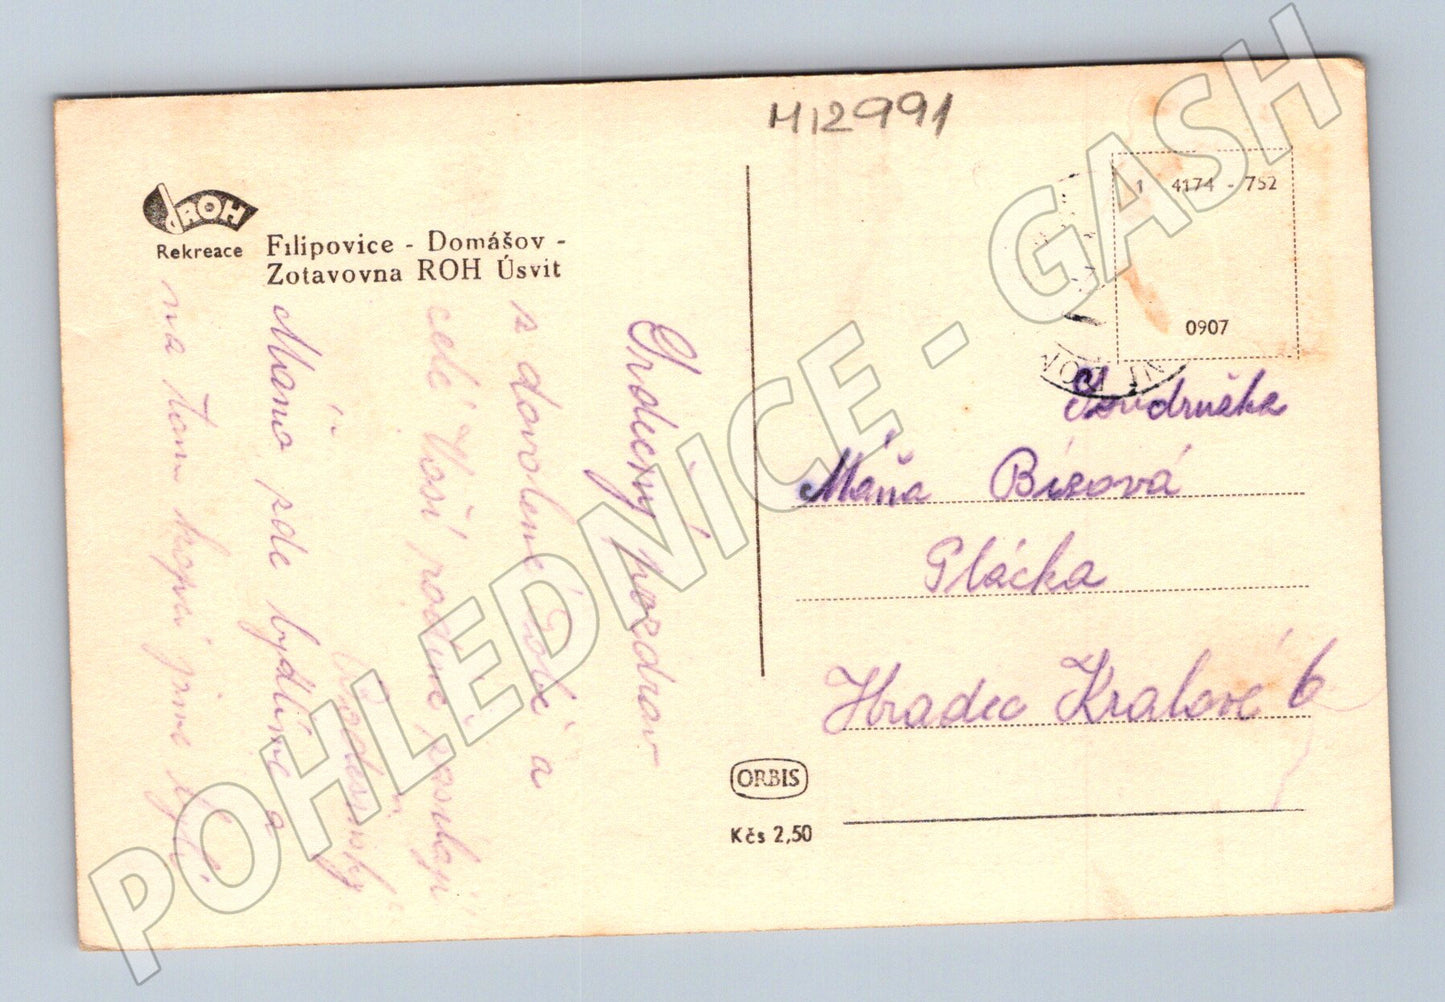 M12991
ROH
Rekreace
Filipovice - Domášov -
Zotavovna ROH Úsvit
Srdečný pozdrav
z dovolené Tobě a
celé Vaší rodině zasílají
Mámo zde bydlíme a
na tom kopci jsme byli
1 4174 - 752
0907
Soudružka
Máňa Bízová
Plácka
Hradec Králové 6
ORBIS
Kčs 2,50
POHLEDNICE - GASH